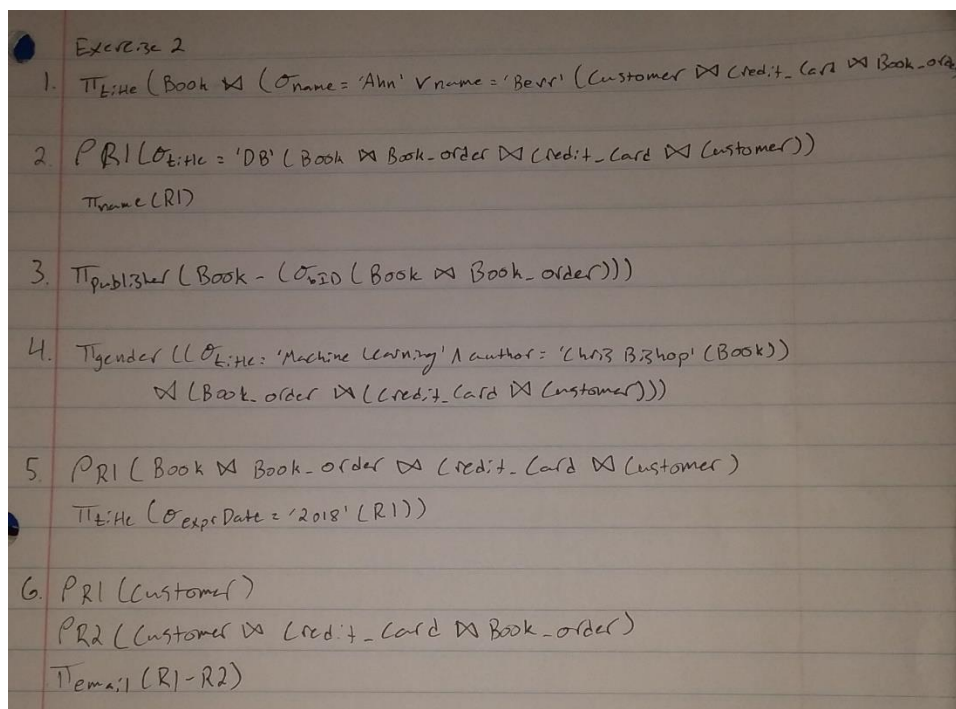 Exercise 2
1. π title (Book ⋈ (σ name = 'Ahn' ∨ name = 'Berr' (Customer ⋈ Credit_Card ⋈ Book_orde
2. ρ R1 (σ title = 'DB' (Book ⋈ Book_order ⋈ Credit_Card ⋈ Customer))
π name (R1)
3. π publisher (Book - (σ bID (Book ⋈ Book_order)))
4. π gender ((σ title = 'Machine Learning' ∧ author = 'Chris Bishop' (Book))
⋈ (Book_order ⋈ (Credit_Card ⋈ Customer)))
5. ρ R1 (Book ⋈ Book_order ⋈ Credit_Card ⋈ Customer)
π title (σ exprDate = '2018' (R1))
6. ρ R1 (Customer)
ρ R2 (Customer ⋈ Credit_Card ⋈ Book_order)
π email (R1-R2)